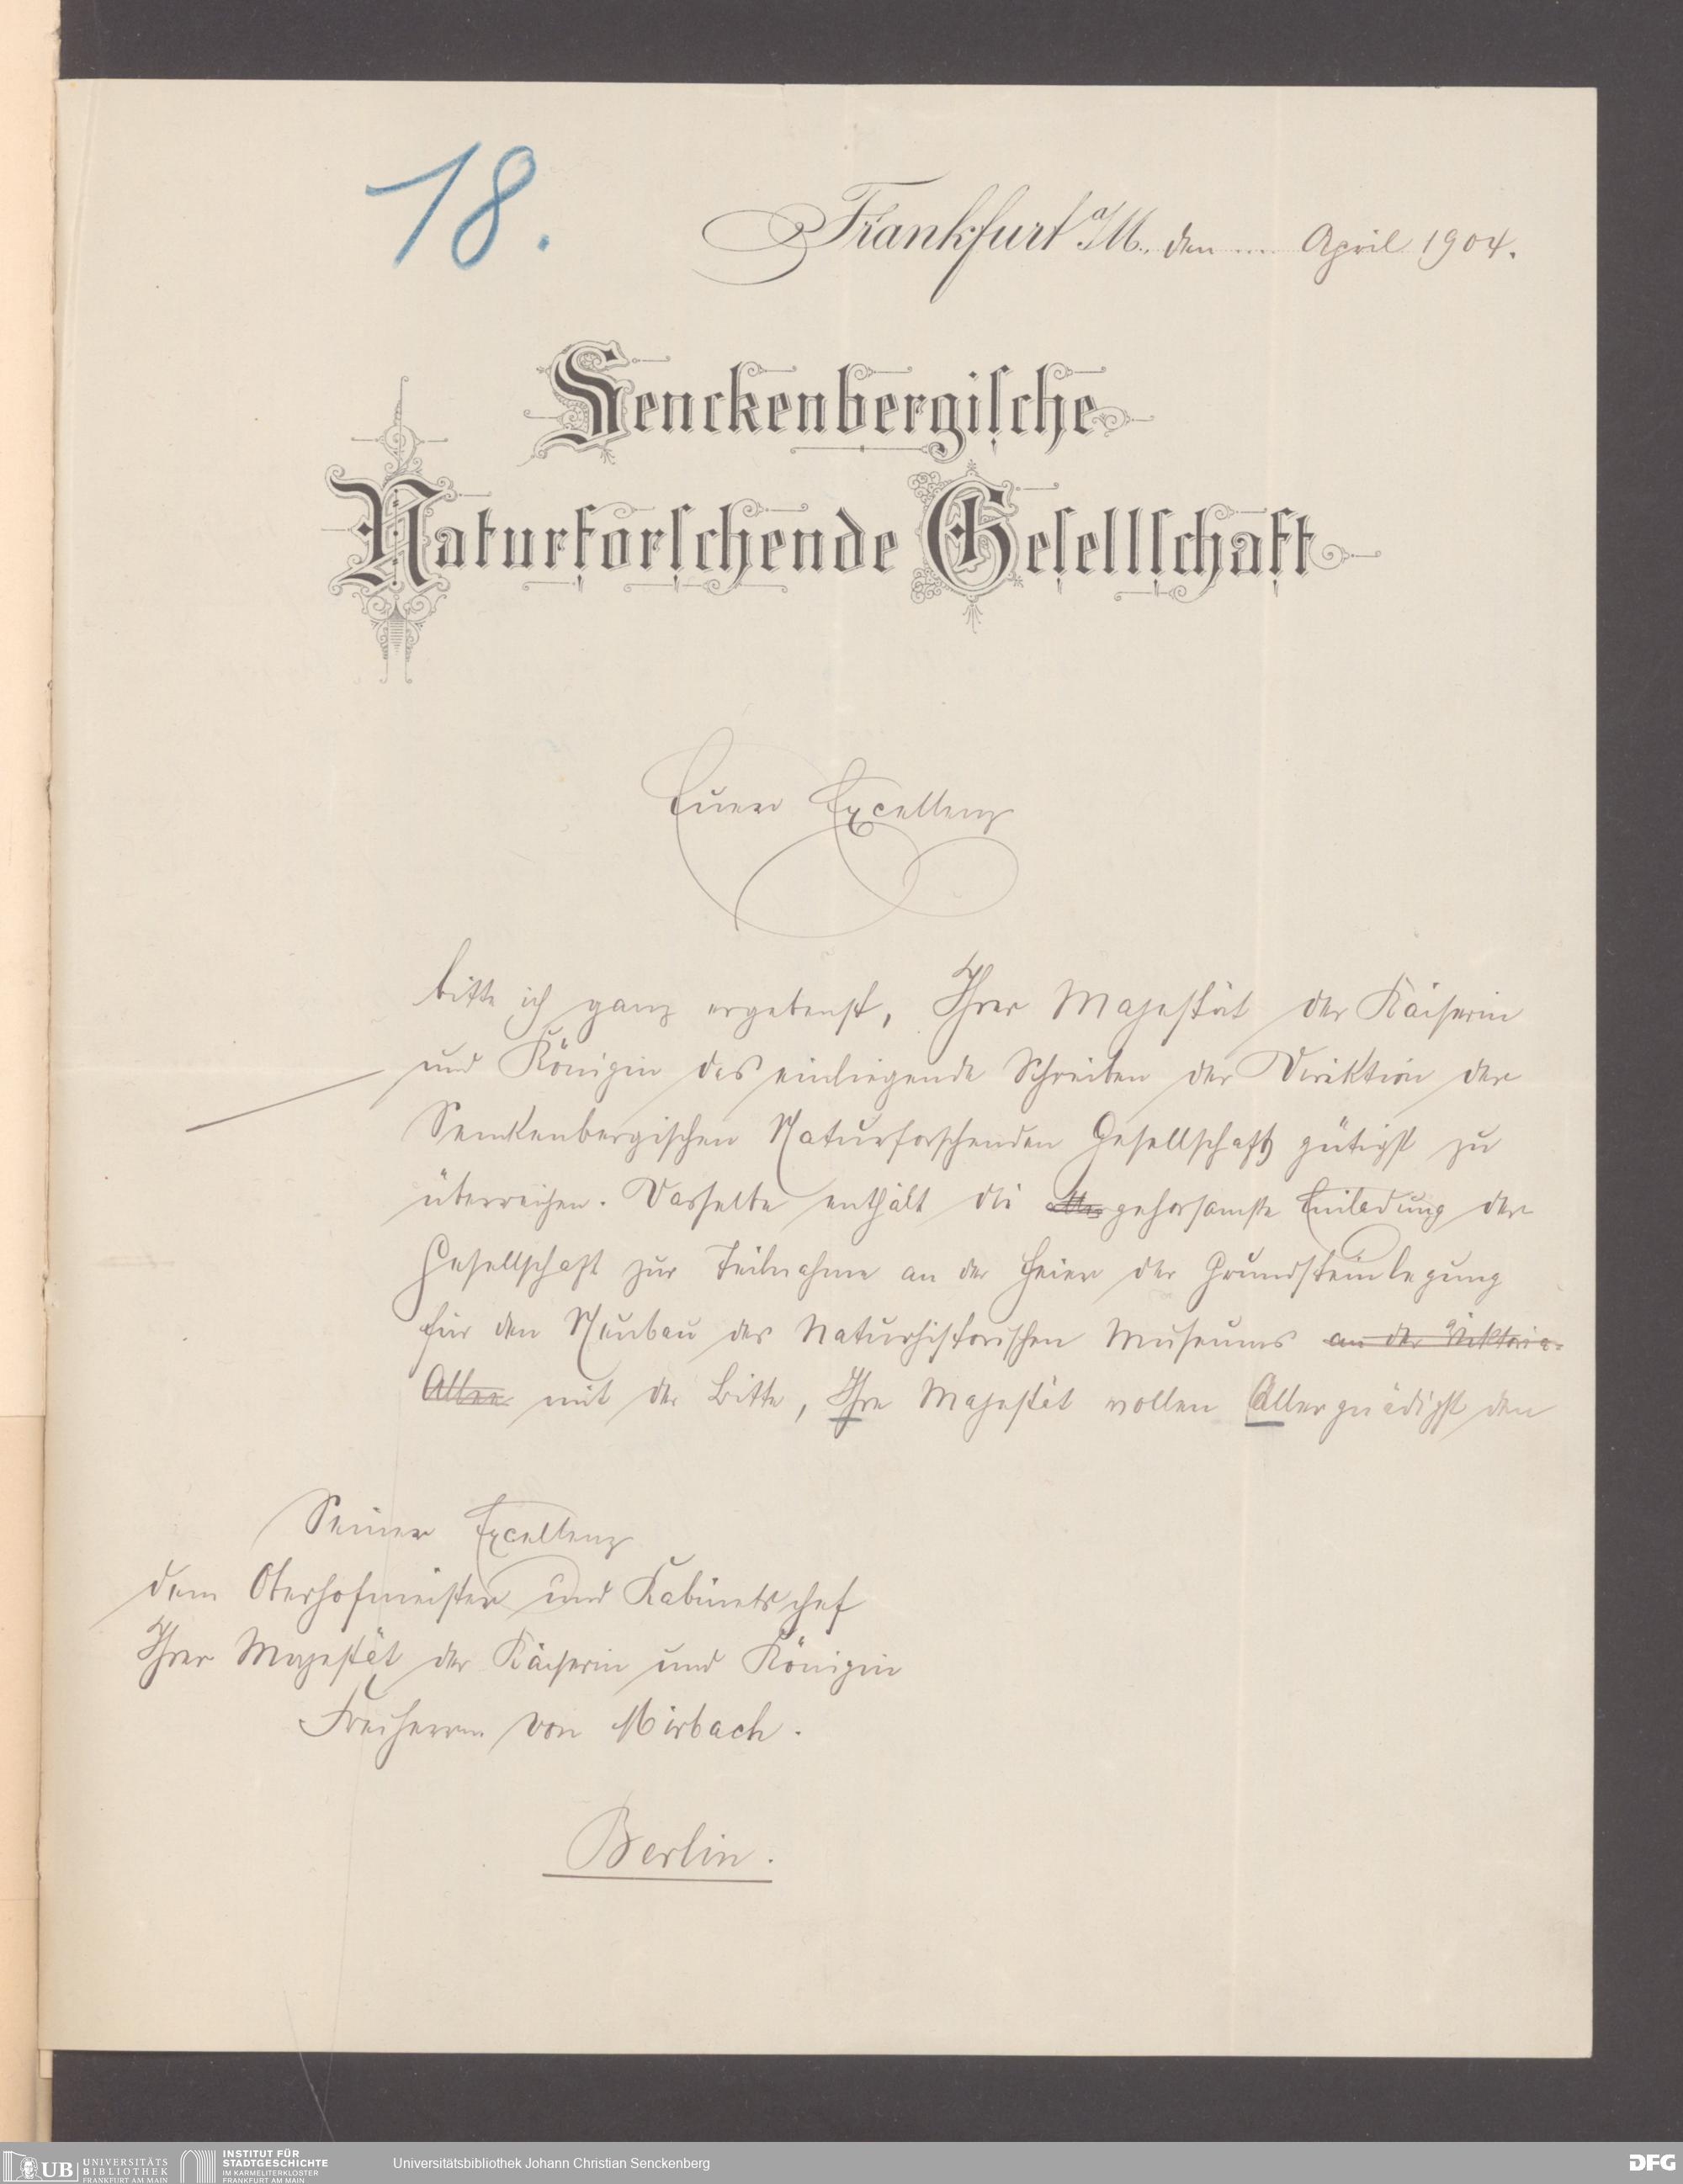 18.
Frankfurt a/M., den .... April 1904.
Senckenbergiſche
Naturforſchende Geſellſchaft
Euer Excellenz
bitte ich ganz ergebenst, Ihrer Majestät der Kaiserin
und Königin das einliegende Schreiben der Direktion der
Senckenbergischen Naturforschenden Gesellschaft gütigst zu
überreichen. Dasselbe enthält die aller gehorsamste Einladung der
Gesellschaft zur Teilnahme an der Feier der Grundsteinlegung
für den Neubau des Naturhistorischen Museums an der Viktoria-
Allee mit der Bitte, Ihre Majestät wollen Allergnädigst den
Seiner Excellenz
dem Oberhofmeister und Kabinetschef
Ihrer Majestät der Kaiserin und Königin
Freiherrn von Mirbach.
Berlin.
UB UNIVERSITÄTS
BIBLIOTHEK
FRANKFURT AM MAIN
INSTITUT FÜR
STADTGESCHICHTE
IM KARMELITERKLOSTER
FRANKFURT AM MAIN
Universitätsbibliothek Johann Christian Senckenberg
DFG